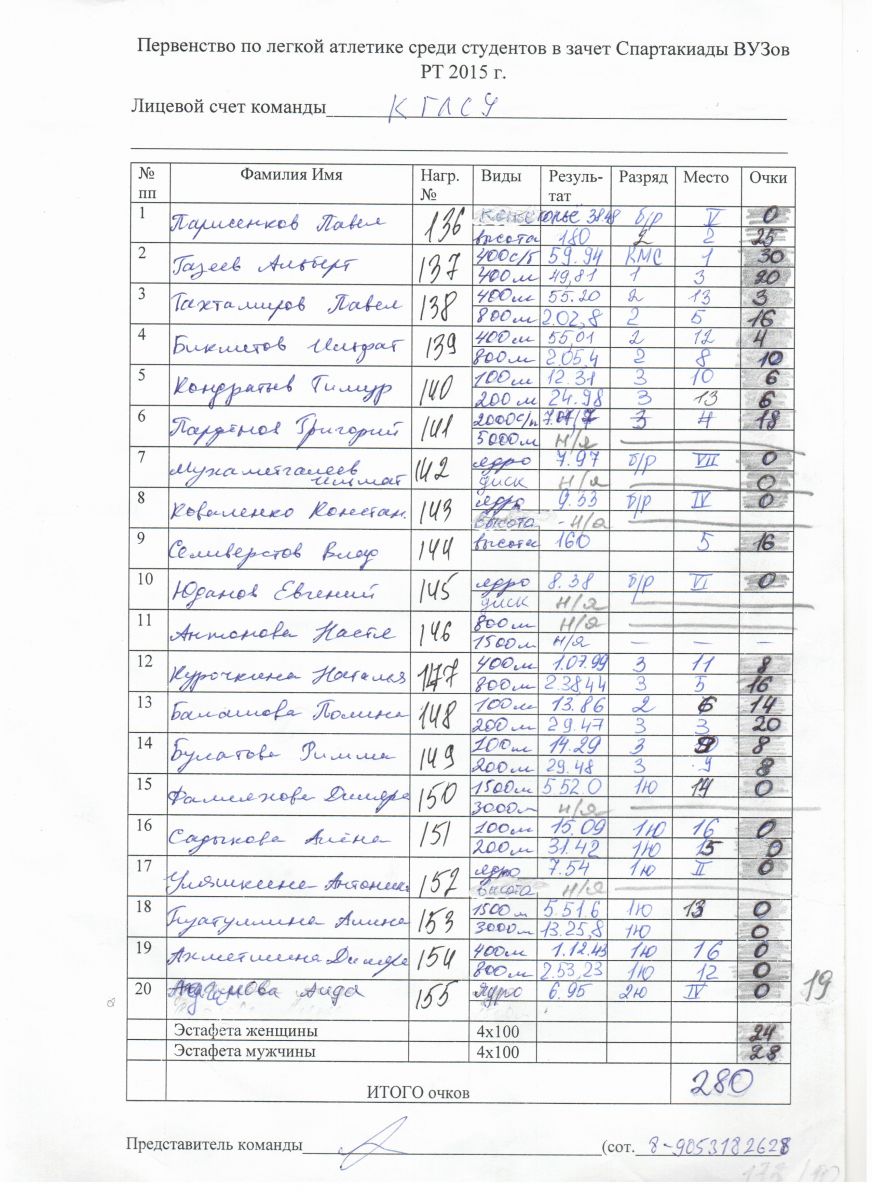 Первенство по легкой атлетике среди студентов в зачет Спартакиады ВУЗов
РТ 2015 г.
Лицевой счет команды КГАСУ
№ пп Фамилия Имя Нагр. № Виды Резуль-тат Разряд Место Очки
1 Парисенков Павел 136 копьё 38.48 б/р V 0
высота 180 2 2 25
2 Газеев Альберт 137 400с/б 59.94 КМС 1 30
400м 49,81 1 3 20
3 Тахтамиров Павел 138 400м 55.20 2 13 3
800м 2.02,8 2 5 16
4 Бикметов Ильфат 139 400м 55,01 2 12 4
800м 2.05,4 2 8 10
5 Кондратьев Тимур 140 100м 12.31 3 10 6
200м 24.98 3 13 6
6 Парфёнов Григорий 141 2000с/п 3 4 18
5000м н/я
7 Мухаметгалеев 142 ядро 7.97 б/р VII 0
диск н/я 0
8 Коваленко Констан. 143 ядро 9.53 б/р IV 0
высота - н/я
9 Селиверстов Влад 144 высота 160 5 16
10 Юданов Евгений 145 ядро 8.38 б/р VI 0
диск н/я
11 Антонова Настя 146 800м н/я
1500м н/я — — —
12 Курочкина Наталья 147 400м 1.07.99 3 11 8
800м 2.38.44 3 5 16
13 Балашова Полина 148 100м 13.86 2 6 14
200м 29.47 3 3 20
14 Булатова Римма 149 100м 14.29 3 9 8
200м 29.48 3 9 8
15 Диляра 150 1500м 5 52.0 1ю 14 0
3000м н/я
16 Садыкова Алёна 151 100м 15.09 1ю 16 0
200м 31.42 1ю 15 0
17 152 ядро 7.54 1ю II 0
высота н/я
18 Алина 153 1500м 5.51.6 1ю 13 0
3000м 13.25,8 1ю 0
19 Ахметшина Диляра 154 400м 1.12.43 1ю 16 0
800м 2.53,23 1ю 12 0
20 Аида 155 ядро 6.95 2ю IV 0
19
Эстафета женщины 4х100 24
Эстафета мужчины 4х100 28
ИТОГО очков 280
Представитель команды (сот. 8-9053182628